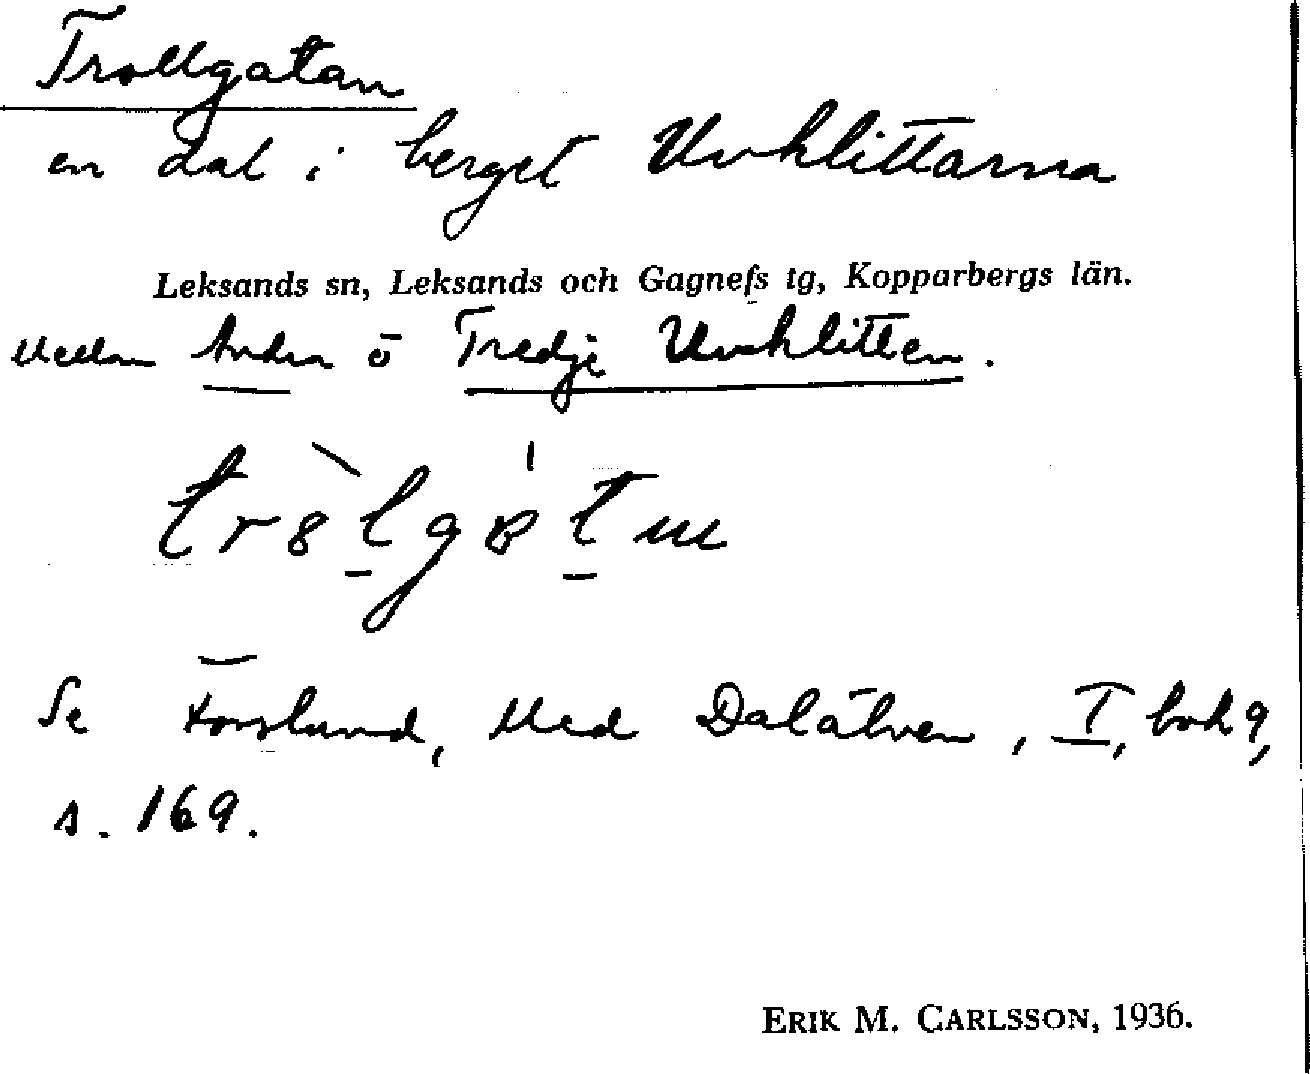 Trollgatan
en dal i berget Uvoklittarna
Leksands sn, Leksands och Gagnefs tg, Kopparbergs län.
Mellan Andra o Tredje Uvoklitten.
Se Forslund, Med Dalälven, I, bok 9,
s. 169.
ERIK M. CARLSSON, 1936.